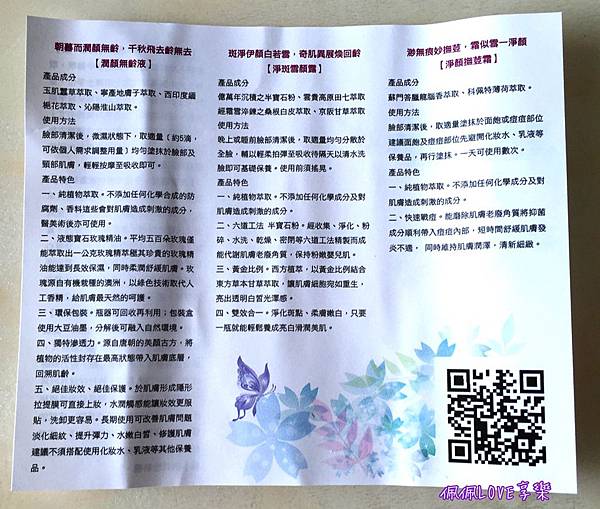 朝暮而潤顏無齡，千秋飛去齡無去
【潤顏無齡液】
產品成分
玉肌蠶草萃取、寧產地膚子萃取、西印度緬
梔花萃取、沁陽淮山萃取。
使用方法
臉部清潔後，微濕狀態下，取適量（約5滴，
可依個人需求調整用量）均勻塗抹於臉部及
頸部肌膚，輕輕按摩至吸收即可。
產品特色
一、純植物萃取。不添加任何化學合成的防
腐劑、香料這些會對肌膚造成刺激的成分，
醫美術後亦可使用。
二、液態寶石玫瑰精油。平均五百朵玫瑰僅
能萃取出一公克玫瑰精萃極其珍貴的玫瑰精
油能達到長效保濕，同時柔潤舒緩肌膚。玫
瑰源自有機栽種的澳洲，以綠色技術取代人
工香精，給肌膚最天然的呵護。
三、環保包裝。瓶器可回收再利用；包裝盒
使用大豆油墨，分解後可融入自然環境。
四、獨特滲透力。源自唐朝的美顏古方，將
植物的活性封存在最高狀態帶入肌膚底層，
回溯肌齡。
五、絕佳妝效、絕佳保護。於肌膚形成隱形
拉提膜可直接上妝，水潤觸感能讓妝效更服
貼，洗卸更容易。長期使用可改善肌膚問題
淡化細紋、提升彈力、水嫩白皙、修護肌膚
建議不須搭配使用化妝水、乳液等其他保養
品。
斑淨伊顏白若雲，奇肌異展煥回齡
【淨斑雲顏露】
產品成分
億萬年沉積之半寶石粉、雲貴高原田七萃取
經霜雪淬鍊之桑根白皮萃取、京阪甘草萃取
使用方法
晚上或睡前臉部清潔後，取適量均勻分散於
全臉，輔以輕柔拍彈至吸收待隔天以清水洗
臉即可基礎保養。使用前須搖晃。
產品特色
一、純植物萃取。不添加任何化學成分及對
肌膚造成刺激的成分。
二、六道工法 半寶石粉。經收集、淨化、粉
碎、水洗、乾燥、密閉等六道工法精製而成
能代謝肌膚老廢角質，保持粉嫩嬰兒肌。
三、黃金比例。西方植萃，以黃金比例結合
東方草本甘草萃取，讓肌膚細胞宛如重生，
亮出透明白皙光澤感。
四、雙效合一。淨化斑點、柔膚嫩白，只要
一瓶就能輕鬆養成亮白滑潤美肌。
渺無痕妙撫荳，霜似雪一淨顏
【淨顏撫荳霜】
產品成分
蘇門答臘龍腦香萃取、科佩特薄荷萃取。
使用方法
臉部清潔後，取適量塗抹於面皰或痘痘部位
建議面皰及痘痘部位先避開化妝水、乳液等
保養品，再行塗抹。一天可使用數次。
產品特色
一、純植物萃取。不添加任何化學成分及對
肌膚造成刺激的成分。
二、快速戰痘。能磨除肌膚老廢角質將抑菌
成分順利帶入痘痘內部，短時間舒緩肌膚發
炎不適， 同時維持肌膚潤澤，清新細緻。
佩佩LOVE享樂